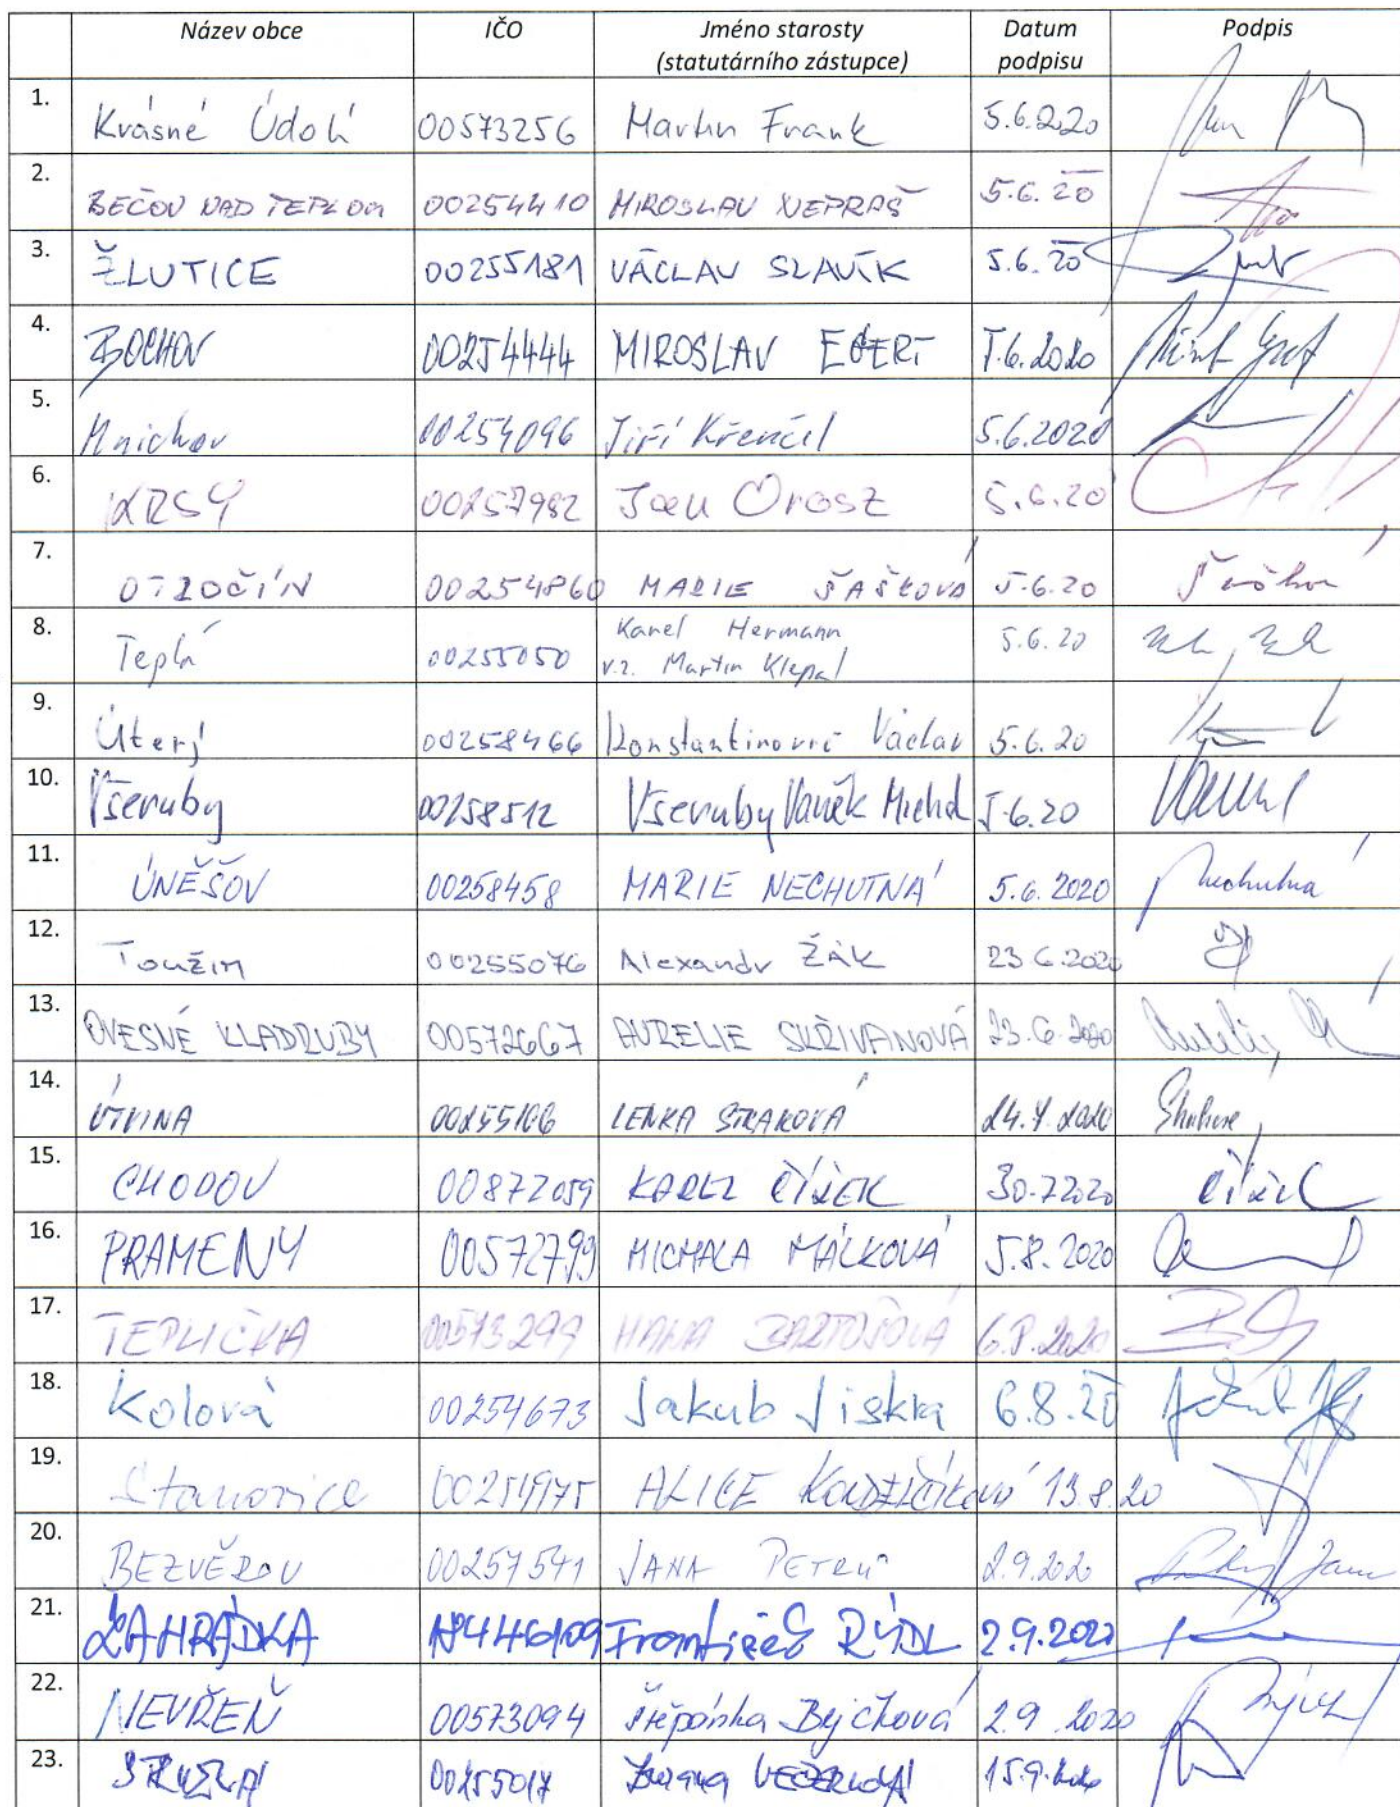 Název obce IČO Jméno starosty (statutárního zástupce) Datum podpisu Podpis
1. Krásné Údolí 00573256 Martin Frank 5.6.2020
2. BEČOV NAD TEPLOU 00254410 MIROSLAV NEPRAŠ 5.6.20
3. ŽLUTICE 00255181 VÁCLAV SLAVÍK 5.6.20
4. BOCHOV 00254444 MIROSLAV EGERT 5.6.2020
5. Mnichov 00254096 Jiří Křenčil 5.6.2020
6. KRSY 00257982 Jan Orosz 5.6.20
7. OTROČÍN 00254860 MARIE ŠAŠKOVÁ 5.6.20
8. Teplá 00255050 Karel Hermann 5.6.20
v.z. Martin Klepal
9. Úterý 00258466 Konstantinovič Václav 5.6.20
10. Všeruby 00258512 Všeruby Vaněk Michal 5.6.20
11. ÚNĚŠOV 00258458 MARIE NECHUTNÁ 5.6.2020 Nechutná
12. Toužim 00255076 Alexandr Žák 23.6.2020
13. OVESNÉ KLADRUBY 00572667 AURELIE SKŘIVANOVÁ 23.6.2020
14. ÚTVINA 00255106 LENKA STRAKOVÁ 24.7.2020
15. CHODOV 00872059 KAREL ČÍŽEK 30.7.2020 Čížek
16. PRAMENY 00572799 MICHALA MÁLKOVÁ 5.8.2020
17. TEPLIČKA 00573299 HANA BARTOŠOVÁ 6.8.2020
18. Kolová 00254673 Jakub Jiskra 6.8.20
19. Stanovice 00254975 ALICE 13.8.20
20. BEZVĚROV 00257541 JANA PETRŮ 2.9.2020
21. ZAHRÁDKA František RÝDL 2.9.2020
22. NEVŘEŇ 00573094 Štěpánka Bejčková 2.9.2020
23. 00255017 Zuzana VEČERKOVÁ 15.9.2020